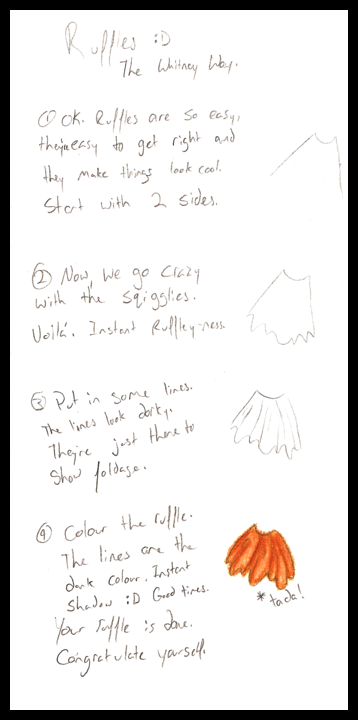 Ruffles :D
The Whitney Way.
① OK. Ruffles are so easy,
they're easy to get right and
they make things look cool.
Start with 2 sides.
② Now, we go crazy
with the squigglies.
Voilá. Instant Ruffley-ness.
③ Put in some lines.
The lines look dorky.
They're just there to
show foldage.
④ Colour the ruffle.
The lines are the
dark colour. Instant
Shadow :D Good times.
*tada!
Your ruffle is done.
Congratulate yourself.